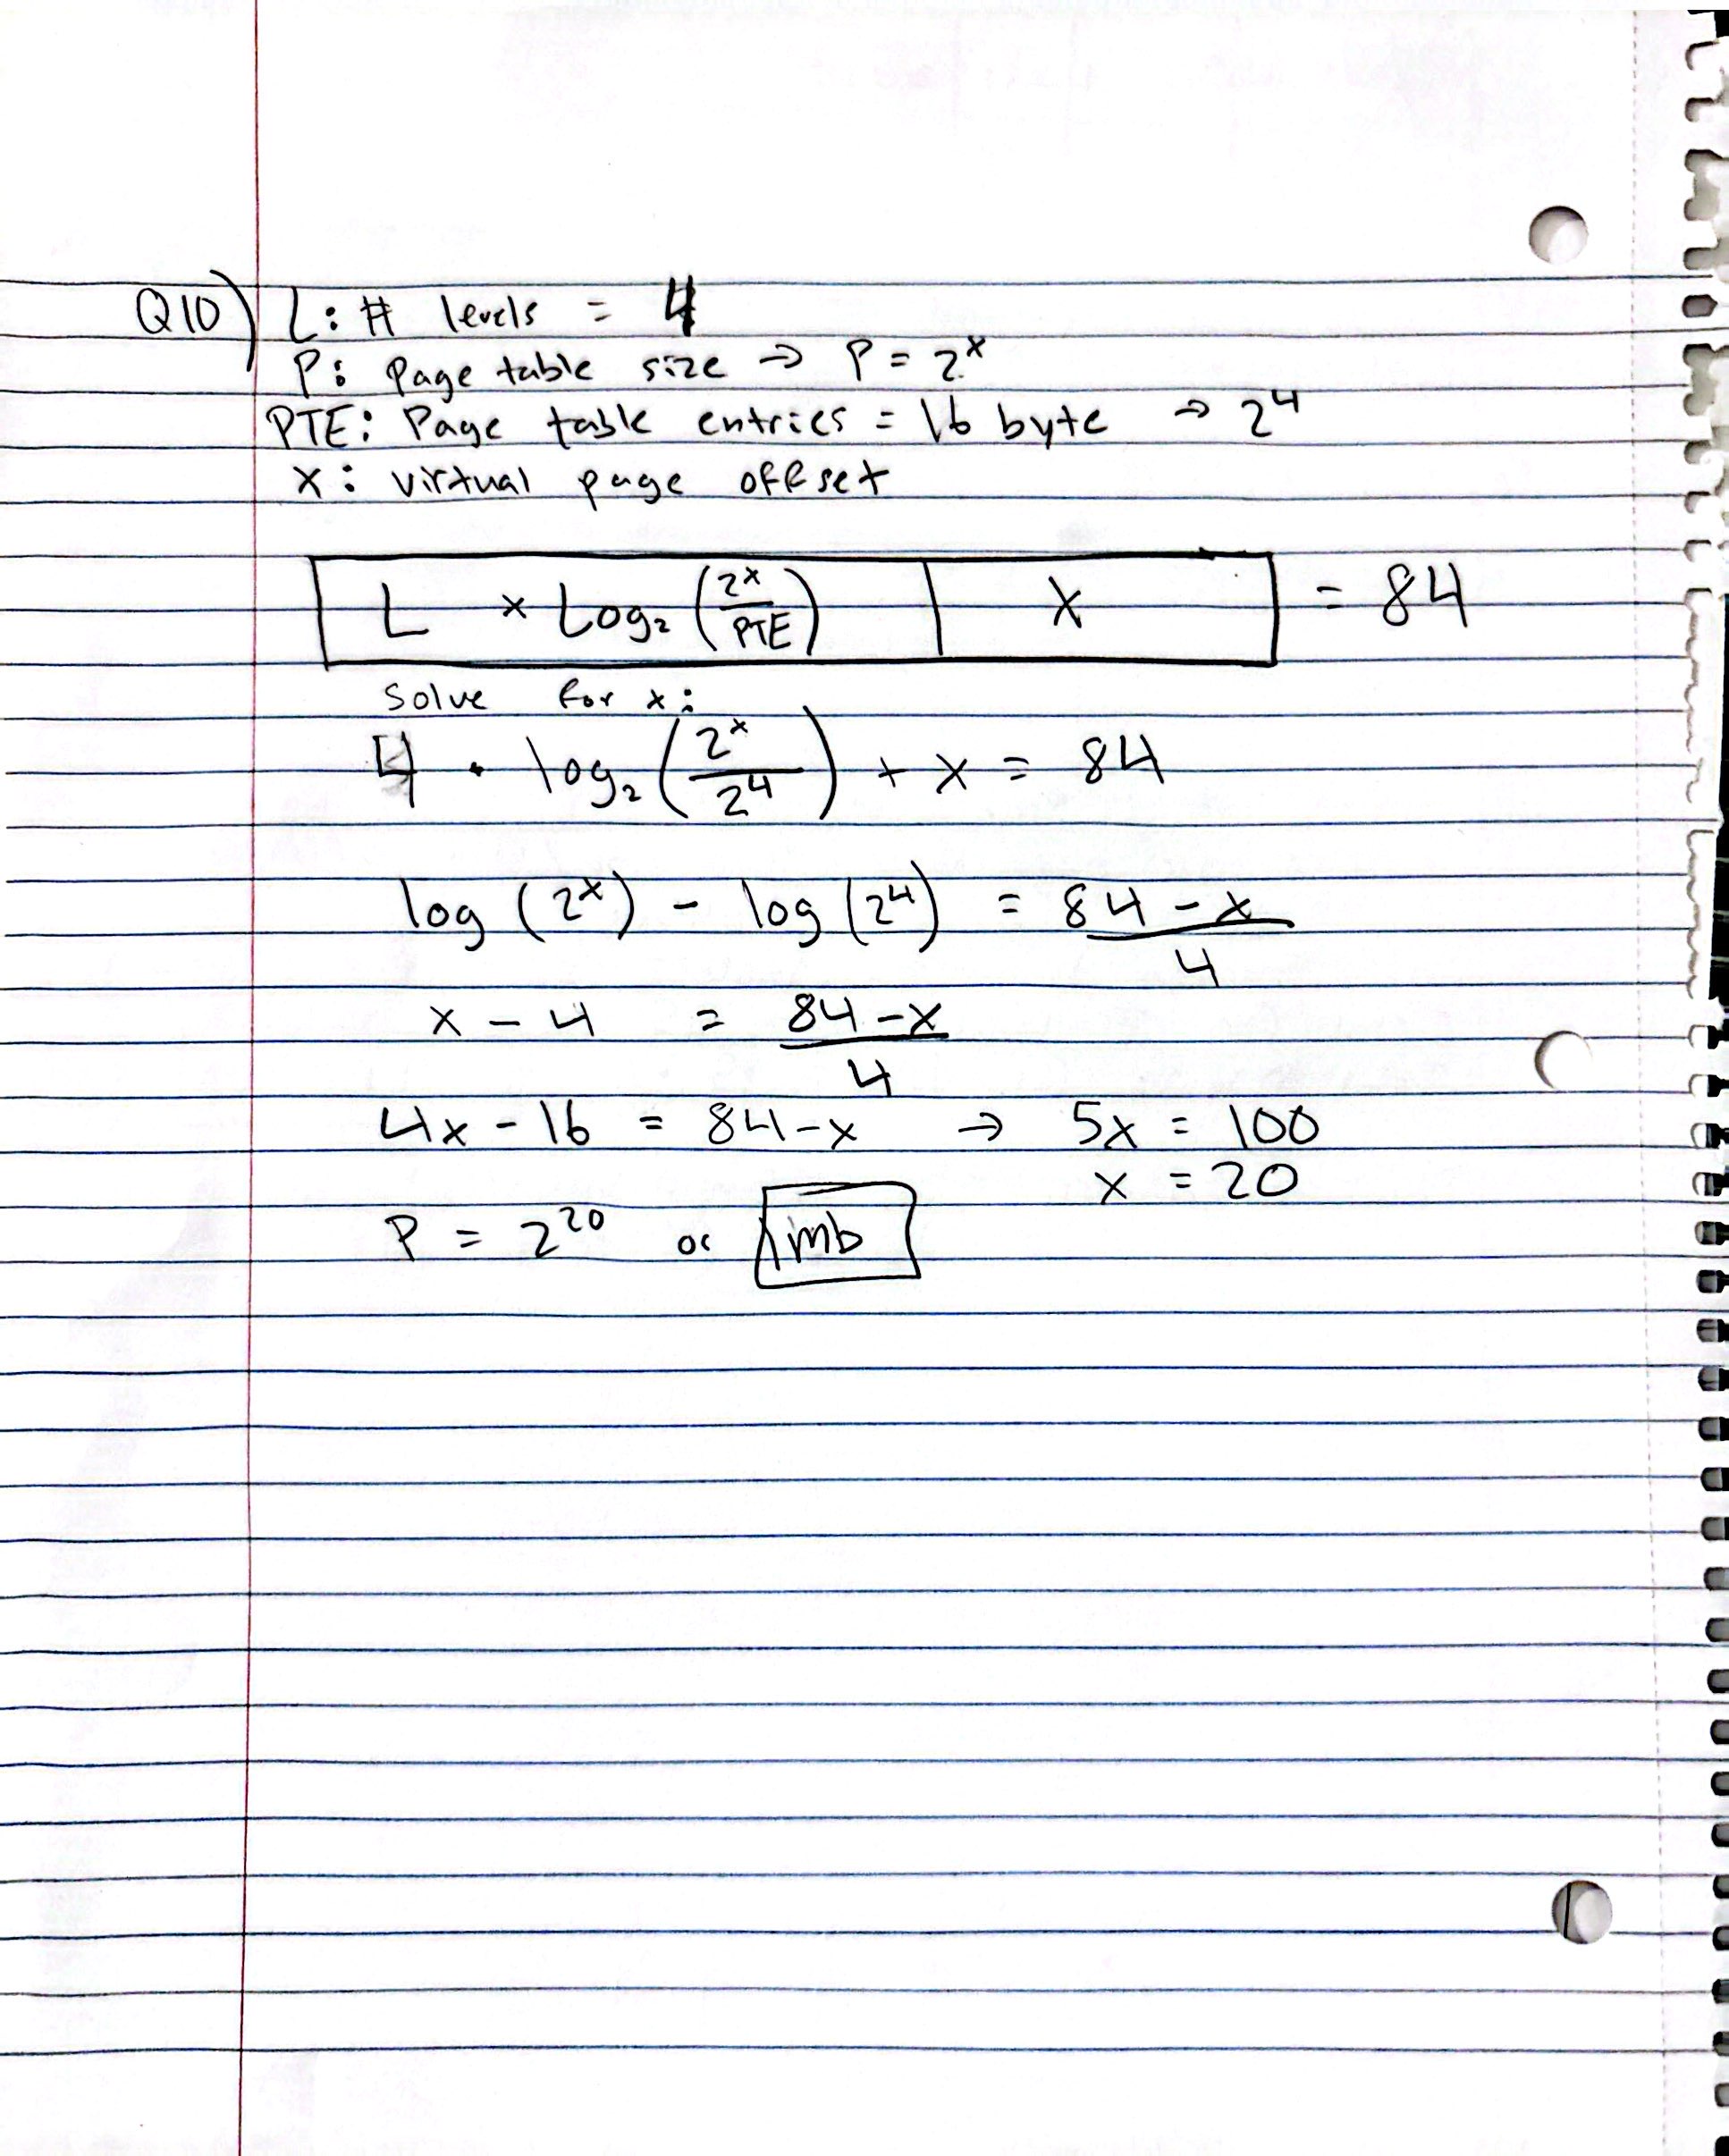 Q10) L: # levels = 4
P: Page table size → P = 2^x
PTE: Page table entries = 16 byte → 2^4
X: virtual page offset
L × Log₂ (2^x / PTE) | X = 84
Solve for x:
4 • log₂ (2^x / 2^4) + x = 84
log (2^x) - log (2^4) = 84 - x / 4
x - 4 = 84 - x / 4
4x - 16 = 84 - x → 5x = 100
x = 20
P = 2^20 or 1mb